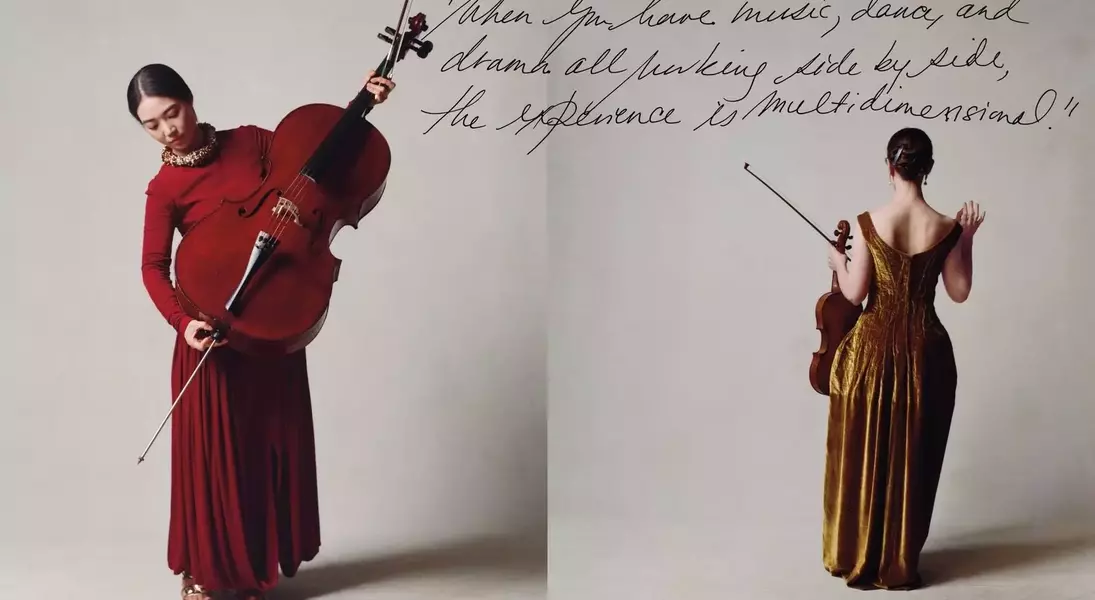 "When you have music, dance, and
drama all working side by side,
the experience is multidimensional."